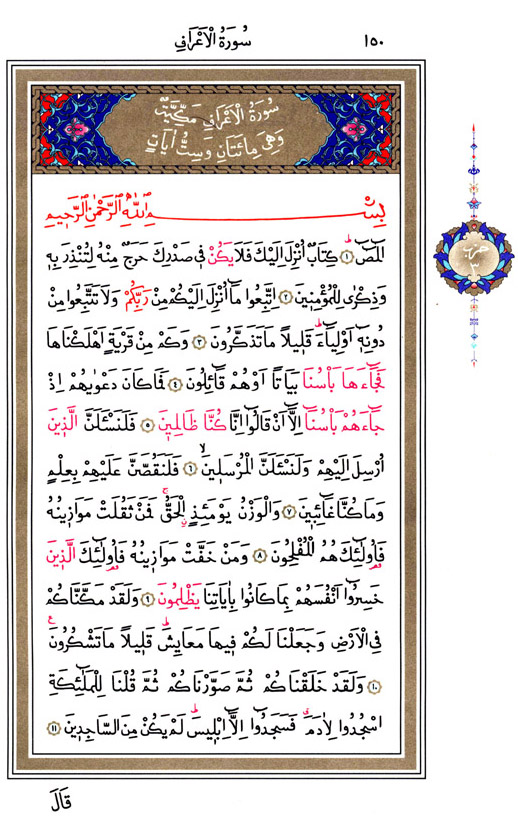 سُورَةُ الْاَعْرَافِ ١٥٠
سُورَةُ الْاَعْرَافِ مَكِّيَّةٌ
وَهِىَ مِائَتَانِ وَسِتُّ اٰيَاتٍ
بِسْمِ اللّٰهِ الرَّحْمٰنِ الرَّحٖيمِ
الٓمٓصٓ ۚ ﴿١﴾ كِتَابٌ اُنْزِلَ اِلَيْكَ فَلَا يَكُنْ فٖى صَدْرِكَ حَرَجٌ مِنْهُ لِتُنْذِرَ بِهٖ
وَذِكْرٰى لِلْمُؤْمِنٖينَ ﴿٢﴾ اِتَّبِعُوا مَٓا اُنْزِلَ اِلَيْكُمْ مِنْ رَبِّكُمْ وَلَا تَتَّبِعُوا مِنْ
دُونِهٖٓ اَوْلِيَٓاءَ ؕ قَلٖيلًا مَا تَذَكَّرُونَ ﴿٣﴾ وَكَمْ مِنْ قَرْيَةٍ اَهْلَكْنَاهَا
فَجَٓاءَهَا بَاْسُنَا بَيَاتًا اَوْ هُمْ قَٓائِلُونَ ﴿٤﴾ فَمَا كَانَ دَعْوٰيهُمْ اِذْ
جَٓاءَهُمْ بَاْسُنَٓا اِلَّٓا اَنْ قَالُٓوا اِنَّا كُنَّا ظَالِمٖينَ ﴿٥﴾ فَلَنَسْـَٔلَنَّ الَّذٖينَ
اُرْسِلَ اِلَيْهِمْ وَلَنَسْـَٔلَنَّ الْمُرْسَلٖينَ ۙ ﴿٦﴾ فَلَنَقُصَّنَّ عَلَيْهِمْ بِعِلْمٍ
وَمَا كُنَّا غَٓائِبٖينَ ﴿٧﴾ وَالْوَزْنُ يَوْمَئِذٍ الْحَقُّ ۚ فَمَنْ ثَقُلَتْ مَوَازٖينُهُ
فَاُو۬لٰٓئِكَ هُمُ الْمُفْلِحُونَ ﴿٨﴾ وَمَنْ خَفَّتْ مَوَازٖينُهُ فَاُو۬لٰٓئِكَ الَّذٖينَ
خَسِرُٓوا اَنْفُسَهُمْ بِمَا كَانُوا بِاٰيَاتِنَا يَظْلِمُونَ ﴿٩﴾ وَلَقَدْ مَكَّنَّاكُمْ
فِى الْاَرْضِ وَجَعَلْنَا لَكُمْ فٖيهَا مَعَايِشَ ؕ قَلٖيلًا مَا تَشْكُرُونَ ۟
﴿١٠﴾ وَلَقَدْ خَلَقْنَاكُمْ ثُمَّ صَوَّرْنَاكُمْ ثُمَّ قُلْنَا لِلْمَلٰٓئِكَةِ
اسْجُدُوا لِاٰدَمَ ۗ فَسَجَدُٓوا اِلَّٓا اِبْلٖيسَ ؕ لَمْ يَكُنْ مِنَ السَّاجِدٖينَ ﴿١١﴾
قَالَ
حزب